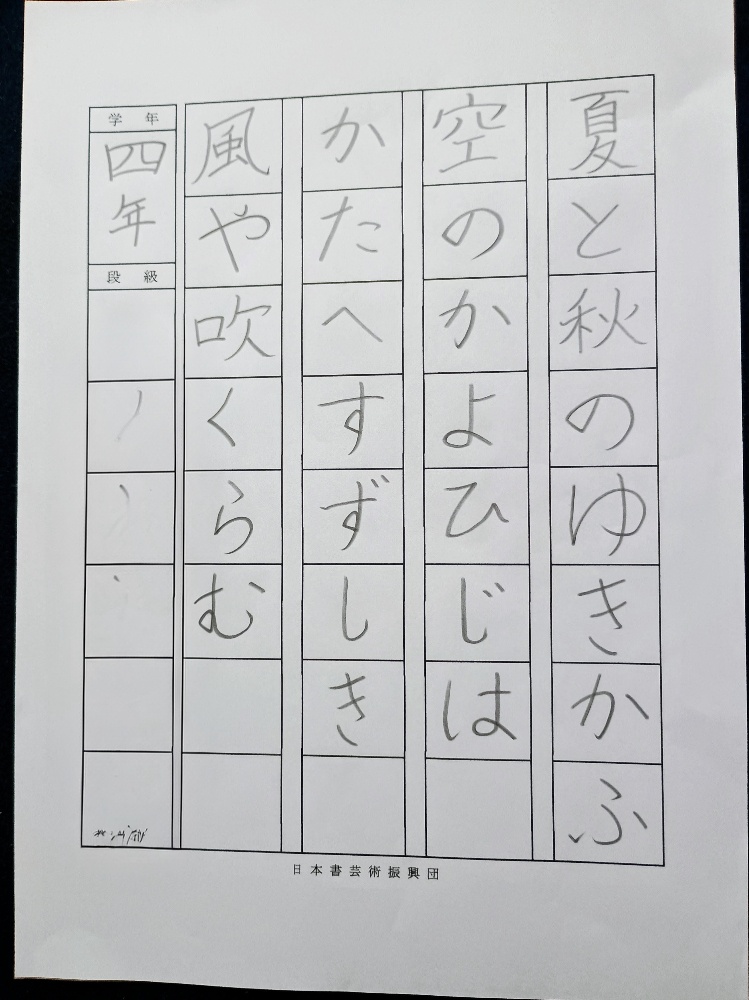 夏と秋のゆきかふ
空のかよひじは
かたへすずしき
風や吹くらむ
学年
四年
段級
日本書芸術振興団